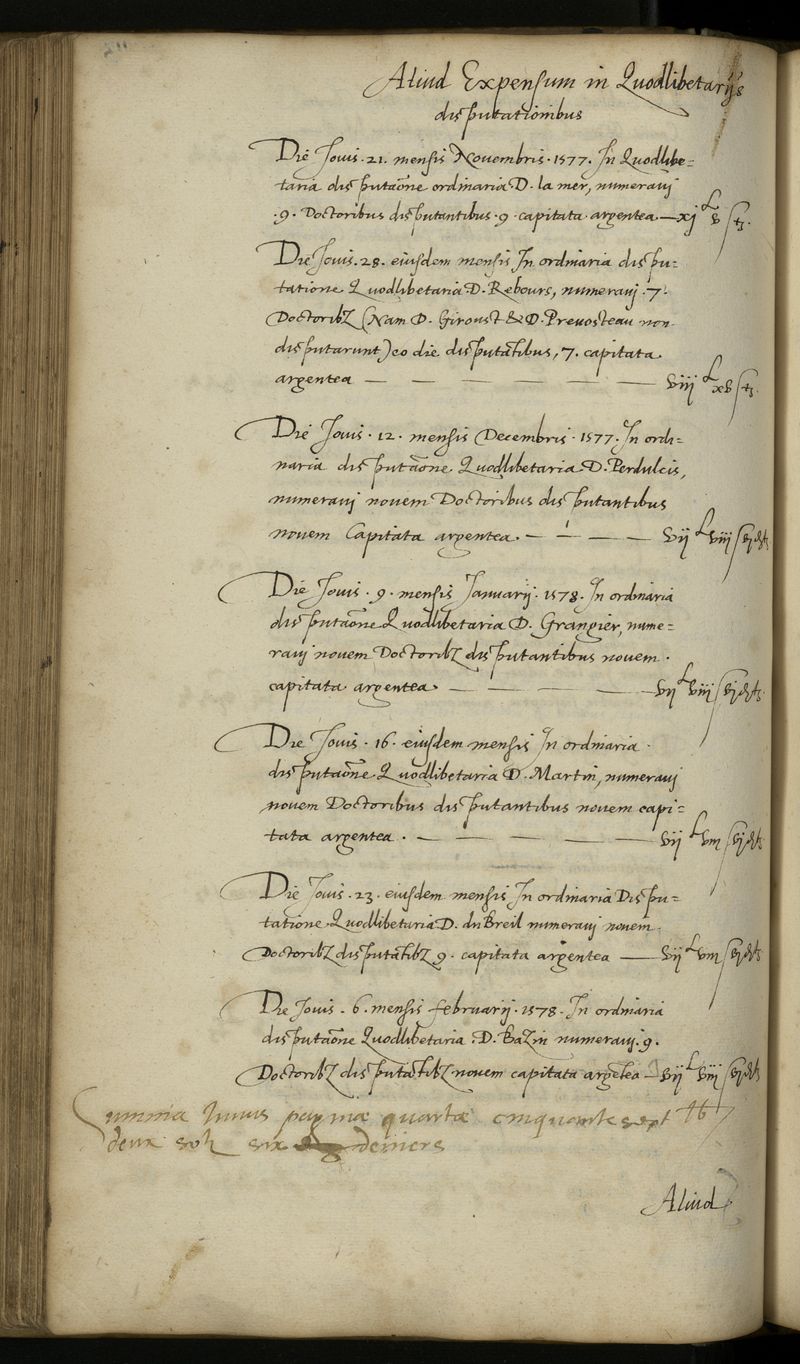 Aliud Expensum in Quodlibetarijs
disputationibus
Die Jovis . 21 . mensis Novembris . 1577 . In Quodlibe=
taria disputaõne ordinaria D . la mer, numeravj
. 9 . Doctoribus disputantibus . 9 . capitata . argentea . — xj L v s t.
Die Jovis . 28 . eiusdem mensis In ordinaria dispu=
tatione Quodlibetaria D . Rebours, numeravj . 7 .
Doctoribz (Nam D . Giroust & D . Prevosteau non
disputarunt) eo die disputãtibus, 7 . capitata
argentea — — — — — — viij L xv s t.
Die Jovis . 12 . mensis Decembris . 1577 . In ordi=
naria disputaõne Quodlibetaria D . Perdulcis,
numeravj novem Doctoribus disputantibus
novem Capitata argentea . — — — — vij L viij s vj d t
Die Jovis . 9 . mensis Januarij . 1578 . In ordinaria
disputaõne Quodlibetaria D . Grangier, nume=
ravj novem Doctoribz disputantibus novem .
capitata argentea . — — — — — vij L viij s vj d t.
Die Jovis . 16 . eiusdem mensis In ordinaria .
disputaõne Quodlibetaria D . Martin, numeravj
novem Doctoribus disputantibus novem capi=
tata argentea . — — — — — vij L viij s vj d t
Die Jovis . 23 . eiusdem mensis In ordinaria Dispu=
tatione Quodlibetaria D . du Breil numeravj novem .
Doctoribz disputãtibz 9 . capitata argentea — vij L viij s vj d t
Die Jovis . 6 . mensis februarij . 1578 . In ordinaria
disputaõne Quodlibetaria . D . Bazin numeravj . 9 .
Doctoribz disputãtibz novem capitata argẽtea — vij L viij s vj d t
Summa huius paginæ quartæ cinquante sept lb
deux solz six deniers
Aliud